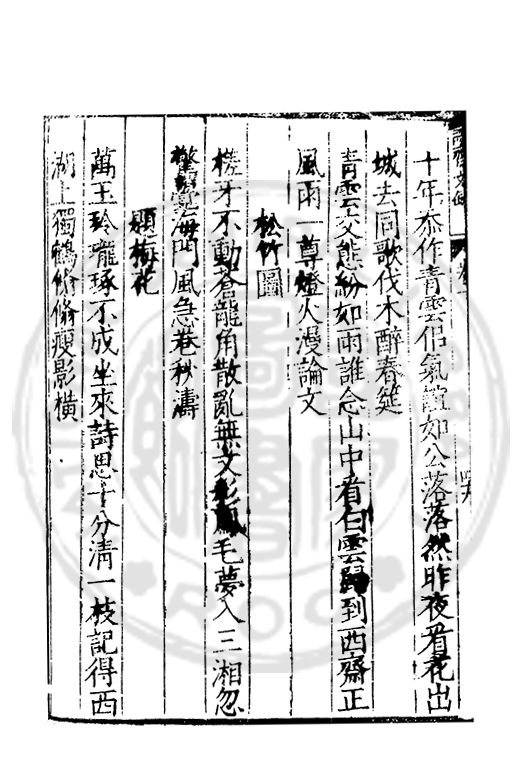 十年忝作青雲侶氣誼如公落落然昨夜看花出
城去同歌伐木醉春筵
青雲交態紛如雨誰念山中看白雲歸到西齋正
風雨一尊燈火漫論文
松竹圖
槎牙不動蒼龍角散亂無文彩鳳毛夢入三湘忽
驚雲海門風急卷秋濤
題梅花
萬玉玲瓏琢不成坐來詩思十分清一枝記得西
湖上獨鶴翛翛瘦影橫